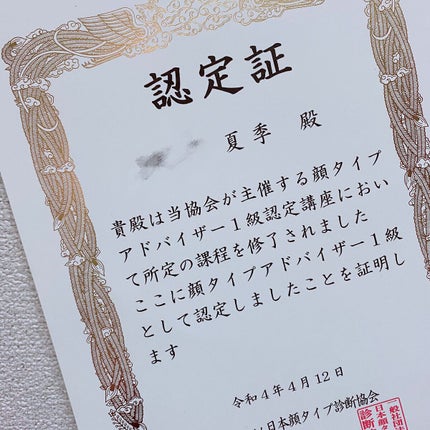 認定証
夏季 殿
貴殿は当協会が主催する顔タイプ
アドバイザー1級認定講座におい
て所定の課程を修了されました
ここに顔タイプアドバイザー1級
として認定しましたことを証明し
ます
令和4年4月12日
日本顔タイプ診断協会
一般社団
日本顔タ
診断